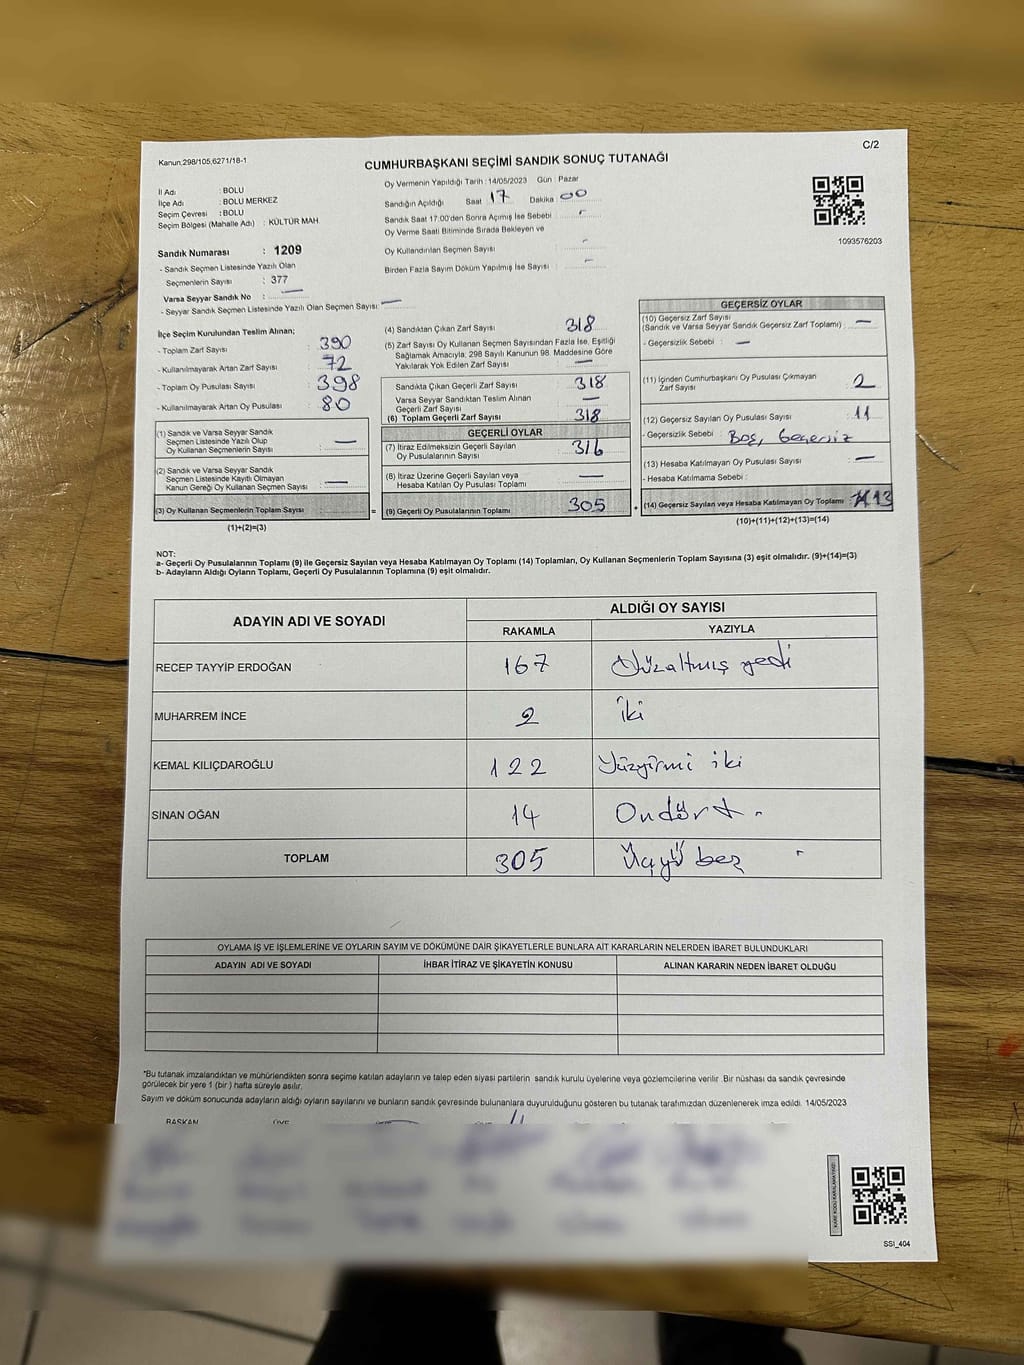 Kanun.298/105,6271/18-1
C/2
CUMHURBAŞKANI SEÇİMİ SANDIK SONUÇ TUTANAĞI
İl Adı : BOLU
İlçe Adı : BOLU MERKEZ
Seçim Çevresi : BOLU
Seçim Bölgesi (Mahalle Adı) : KÜLTÜR MAH.
Sandık Numarası : 1209
- Sandık Seçmen Listesinde Yazılı Olan
Seçmenlerin Sayısı : 377
Varsa Seyyar Sandık No : —
- Seyyar Sandık Seçmen Listesinde Yazılı Olan Seçmen Sayısı: —
Oy Vermenin Yapıldığı Tarih : 14/05/2023 Gün : Pazar
Sandığın Açıldığı Saat 17 Dakika 00
Sandık Saat 17:00'den Sonra Açımış İse Sebebi -
Oy Verme Saati Bitiminde Sırada Bekleyen ve
Oy Kullandırılan Seçmen Sayısı -
Birden Fazla Sayım Döküm Yapılmış İse Sayısı : -
1093576203
İlçe Seçim Kurulundan Teslim Alınan;
- Toplam Zarf Sayısı : 390
- Kullanılmayarak Artan Zarf Sayısı : 72
- Toplam Oy Pusulası Sayısı : 398
- Kullanılmayarak Artan Oy Pusulası : 80
(1) Sandık ve Varsa Seyyar Sandık
Seçmen Listesinde Yazılı Olup
Oy Kullanan Seçmenlerin Sayısı : —
(2) Sandık ve Varsa Seyyar Sandık
Seçmen Listesinde Kayıtlı Olmayan
Kanun Gereği Oy Kullanan Seçmen Sayısı : —
(3) Oy Kullanan Seçmenlerin Toplam Sayısı =
(1)+(2)=(3)
(4) Sandıktan Çıkan Zarf Sayısı : 318
(5) Zarf Sayısı Oy Kullanan Seçmen Sayısından Fazla İse, Eşitliği
Sağlamak Amacıyla, 298 Sayılı Kanunun 98. Maddesine Göre
Yakılarak Yok Edilen Zarf Sayısı : —
Sandıkta Çıkan Geçerli Zarf Sayısı : 318
Varsa Seyyar Sandıktan Teslim Alınan
Geçerli Zarf Sayısı : —
(6) Toplam Geçerli Zarf Sayısı : 318
GEÇERLİ OYLAR
(7) İtiraz Edilmeksizin Geçerli Sayılan
Oy Pusulalarının Sayısı : 316
(8) İtiraz Üzerine Geçerli Sayılan veya
Hesaba Katılan Oy Pusulası Toplamı : —
(9) Geçerli Oy Pusulalarının Toplamı : 305 +
GEÇERSİZ OYLAR
(10) Geçersiz Zarf Sayısı
(Sandık ve Varsa Seyyar Sandık Geçersiz Zarf Toplamı) : —
- Geçersizlik Sebebi : —
(11) İçinden Cumhurbaşkanı Oy Pusulası Çıkmayan
Zarf Sayısı : 2
(12) Geçersiz Sayılan Oy Pusulası Sayısı : 11
- Geçersizlik Sebebi : Boş, Geçersiz
(13) Hesaba Katılmayan Oy Pusulası Sayısı : —
- Hesaba Katılmama Sebebi :
(14) Geçersiz Sayılan veya Hesaba Katılmayan Oy Toplamı : 13
(10)+(11)+(12)+(13)=(14)
NOT:
a- Geçerli Oy Pusulalarının Toplamı (9) ile Geçersiz Sayılan veya Hesaba Katılmayan Oy Toplamı (14) Toplamları, Oy Kullanan Seçmenlerin Toplam Sayısına (3) eşit olmalıdır. (9)+(14)=(3)
b- Adayların Aldığı Oyların Toplamı, Geçerli Oy Pusulalarının Toplamına (9) eşit olmalıdır.
ADAYIN ADI VE SOYADI ALDIĞI OY SAYISI
RAKAMLA YAZIYLA
RECEP TAYYİP ERDOĞAN 167 Yüzaltmış yedi
MUHARREM İNCE 2 iki
KEMAL KILIÇDAROĞLU 122 Yüzyirmi iki
SİNAN OĞAN 14 Ondört
TOPLAM 305 Üçyü beş
OYLAMA İŞ VE İŞLEMLERİNE VE OYLARIN SAYIM VE DÖKÜMÜNE DAİR ŞİKAYETLERLE BUNLARA AİT KARARLARIN NELERDEN İBARET BULUNDUKLARI
ADAYIN ADI VE SOYADI İHBAR İTİRAZ VE ŞİKAYETİN KONUSU ALINAN KARARIN NEDEN İBARET OLDUĞU
"Bu tutanak imzalandıktan ve mühürlendikten sonra seçime katılan adayların ve talep eden siyasi partilerin sandık kurulu üyelerine veya gözlemcilerine verilir .Bir nüshası da sandık çevresinde
görülecek bir yere 1 (bir ) hafta süreyle asılır.
Sayım ve döküm sonucunda adayların aldığı oyların sayılarını ve bunların sandık çevresinde bulunanlara duyurulduğunu gösteren bu tutanak tarafımızdan düzenlenerek imza edildi. 14/05/2023
BAŞKAN ÜYE
SSI_404